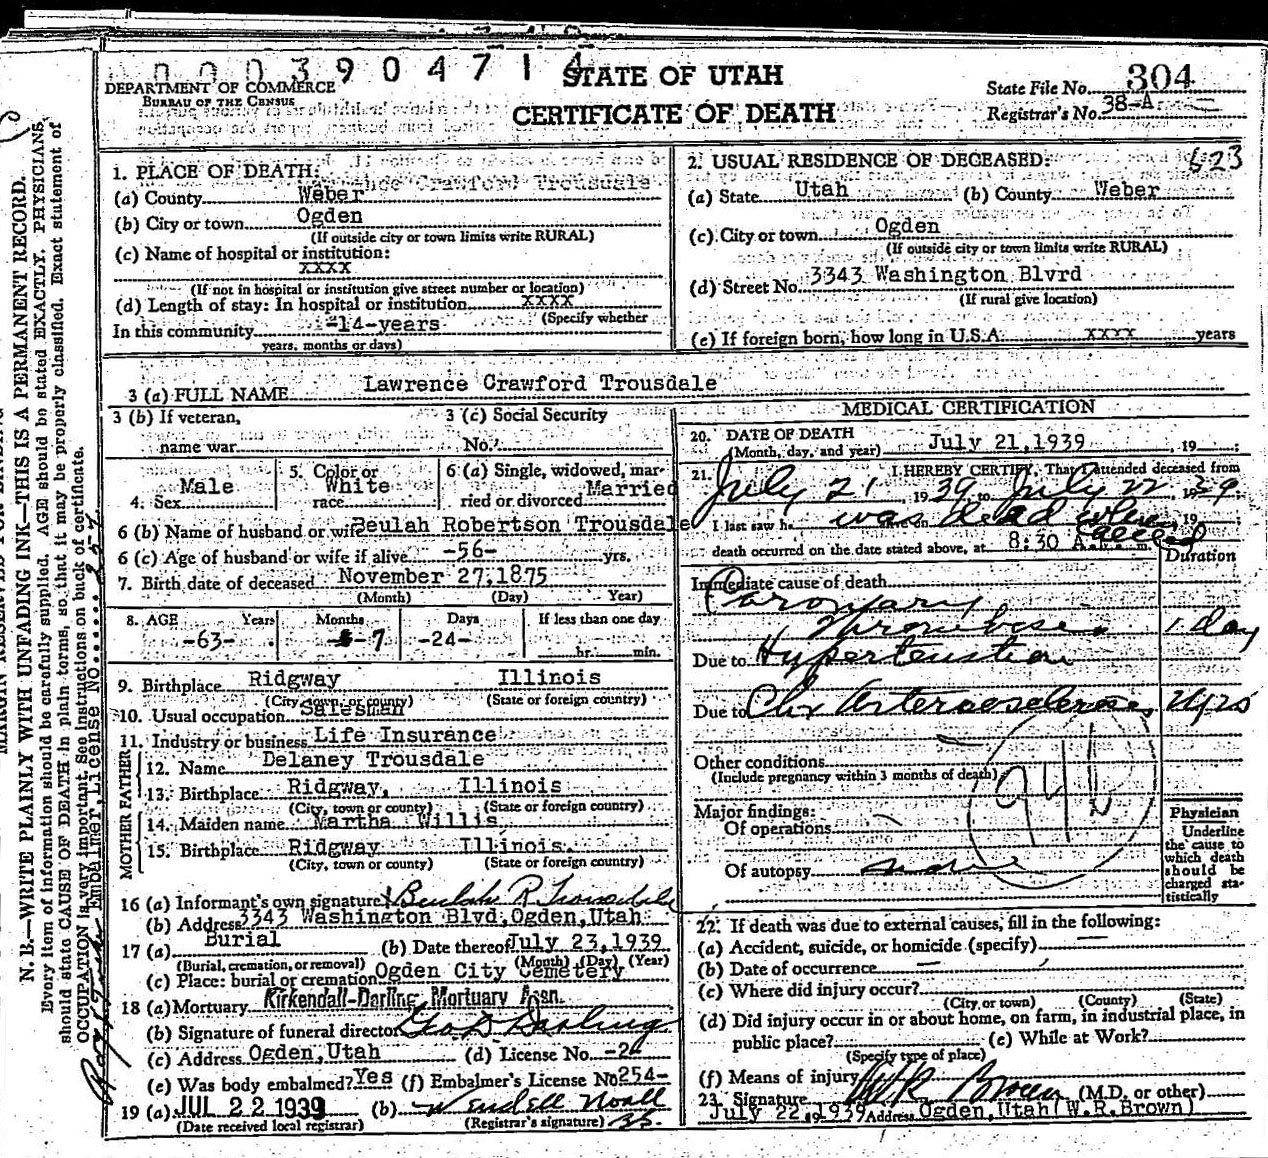 0003904714
STATE OF UTAH
CERTIFICATE OF DEATH
DEPARTMENT OF COMMERCE
BUREAU OF THE CENSUS
State File No. 304
Registrar's No. 38-A
523
1. PLACE OF DEATH:
(a) County Weber
(b) City or town Ogden
(If outside city or town limits write RURAL)
(c) Name of hospital or institution:
xxxx
(If not in hospital or institution give street number or location)
(d) Length of stay: In hospital or institution xxxx
(Specify whether
In this community -14-years
years, months or days)
2. USUAL RESIDENCE OF DECEASED:
(a) State Utah (b) County Weber
(c) City or town Ogden
(If outside city or town limits write RURAL)
(d) Street No. 3343 Washington Blvrd
(If rural give location)
(e) If foreign born, how long in U.S.A. xxxx years
3 (a) FULL NAME Lawrence Crawford Trousdale
3 (b) If veteran,
name war
3 (c) Social Security
No.
4. Sex Male
5. Color or race White
6 (a) Single, widowed, married or divorced Married
6 (b) Name of husband or wife Beulah Robertson Trousdale
6 (c) Age of husband or wife if alive -56- yrs.
7. Birth date of deceased November 27,1875
(Month) (Day) Year)
8. AGE Years Months Days If less than one day
-63- -7 -24- hr. min.
9. Birthplace Ridgway Illinois
(City, town, or county) (State or foreign country)
10. Usual occupation Salesman
11. Industry or business Life Insurance
FATHER
12. Name Delaney Trousdale
13. Birthplace Ridgway, Illinois
(City, town or county) (State or foreign country)
MOTHER
14. Maiden name Martha Willis
15. Birthplace Ridgway Illinois.
(City, town or county) (State or foreign country)
16 (a) Informant's own signature Beulah R. Trousdale
(b) Address 3343 Washington Blvd, Ogden, Utah
17 (a) Burial (b) Date thereof July 23,1939
(Burial, cremation, or removal) (Month) (Day) (Year)
(c) Place: burial or cremation Ogden City Cemetery
18 (a) Mortuary Kirkendall-Darling Mortuary Assn.
(b) Signature of funeral director Geo D Darling
(c) Address Ogden, Utah (d) License No.
(e) Was body embalmed? Yes (f) Embalmer's License No 254-
19 (a) JUL 22 1939 (b) Wendell Noall
(Date received local registrar) (Registrar's signature)
MEDICAL CERTIFICATION
20. DATE OF DEATH July 21,1939, 19
(Month, day, and year)
21. I HEREBY CERTIFY, That I attended deceased from
July 21, 1939, to July 22, 1939
I last saw h was dead when called 19
death occurred on the date stated above, at 8:30 A. m.
Duration
Immediate cause of death
Coronary
Thrombosis 1 day
Due to Hypertension
Due to Chr Arteriosclerosis
94b
Other conditions
(Include pregnancy within 3 months of death)
Major findings:
Of operations
Of autopsy none
Physician
Underline the cause to which death should be charged statistically
22. If death was due to external causes, fill in the following:
(a) Accident, suicide, or homicide (specify)
(b) Date of occurrence
(c) Where did injury occur?
(City or town) (County) (State)
(d) Did injury occur in or about home, on farm, in industrial place, in
public place? (e) While at Work?
(Specify type of place)
(f) Means of injury
23. Signature WR Brown (M.D. or other)
July 22, 1939 Address Ogden, Utah (W.R.Brown)
N. B.—WRITE PLAINLY WITH UNFADING INK—THIS IS A PERMANENT RECORD.
Every item of information should be carefully supplied. AGE should be stated EXACTLY. PHYSICIANS
should state CAUSE OF DEATH in plain terms, so that it may be properly classified. Exact statement of
OCCUPATION is very important. See instructions on back of certificate.
Embalmer License No.